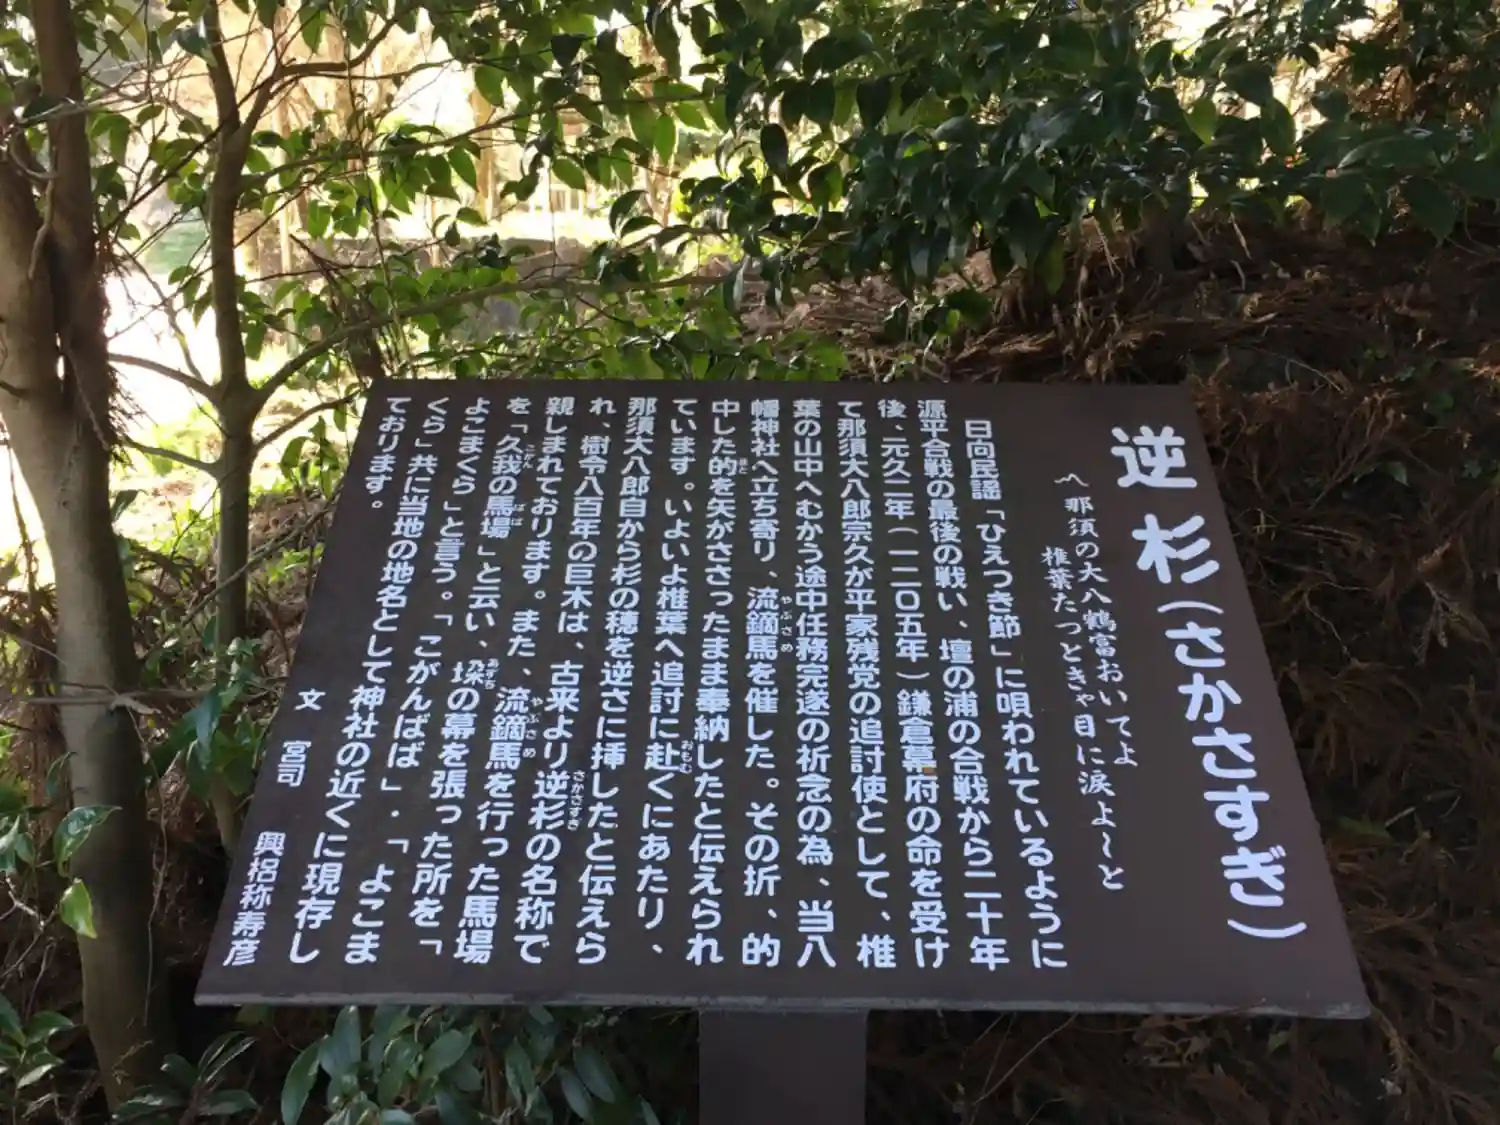 逆杉(さかさすぎ)
へ那須の大八鶴富おいてよ
椎葉たつときゃ目に涙よ~と
日向民謡「ひえつき節」に唄われているように
源平合戦の最後の戦い、壇の浦の合戦から二十年
後、元久二年(一二〇五年)鎌倉幕府の命を受け
て那須大八郎宗久が平家残党の追討使として、椎
葉の山中へむかう途中任務完遂の祈念の為、当八
幡神社へ立ち寄り、流鏑馬を催した。その折、的
中した的を矢がささったまま奉納したと伝えられ
ています。いよいよ椎葉へ追討に赴くにあたり、
那須大八郎自から杉の穂を逆さに挿したと伝えら
れ、樹令八百年の巨木は、古来より逆杉の名称で
親しまれております。また、流鏑馬を行った馬場
を「久我の馬場」と云い、垜の幕を張った所を「
よこまくら」と言う。「こがんばば」・「よこま
くら」共に当地の地名として神社の近くに現存し
ております。
文 宮司 興梠称寿彦